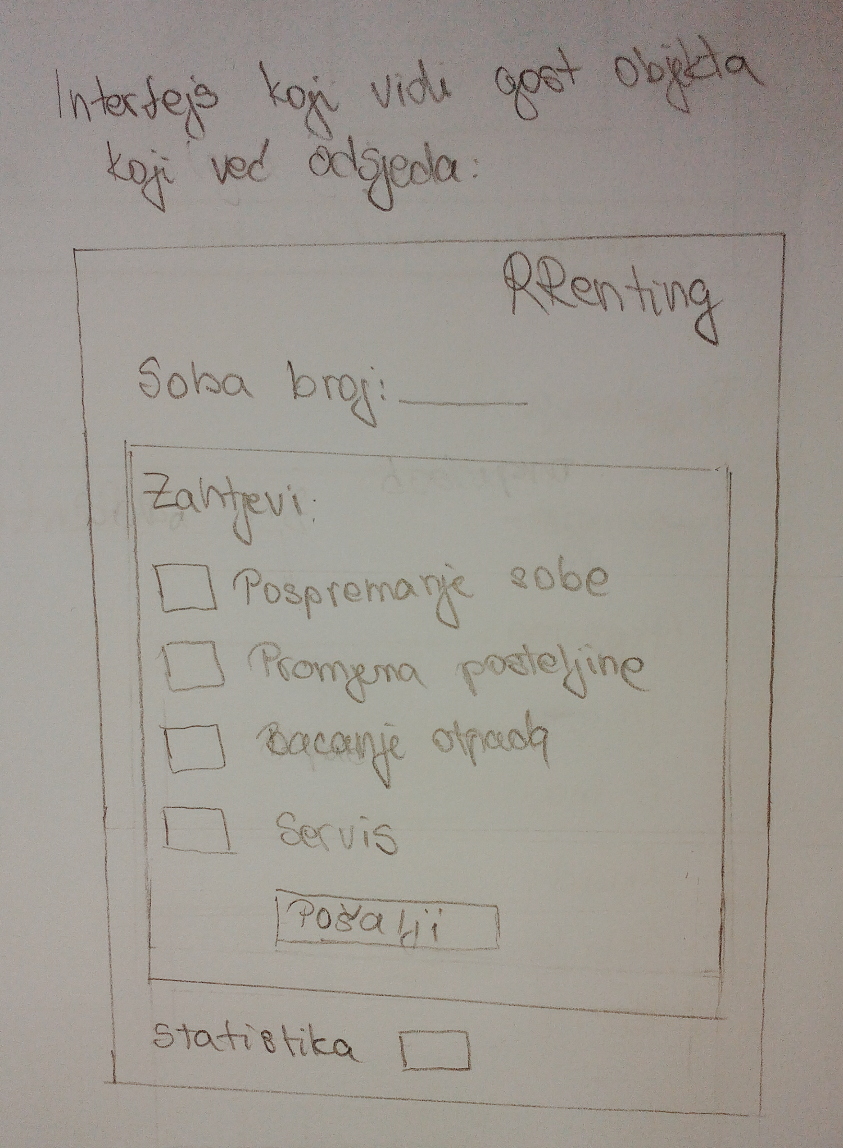 Interfejs koji vidi gost objekta
koji već odsjeda:
RRenting
Soba broj:
Zahtjevi:
Pospremanje sobe
Promjena posteljine
Bacanje otpada
Servis
Pošalji
Statistika